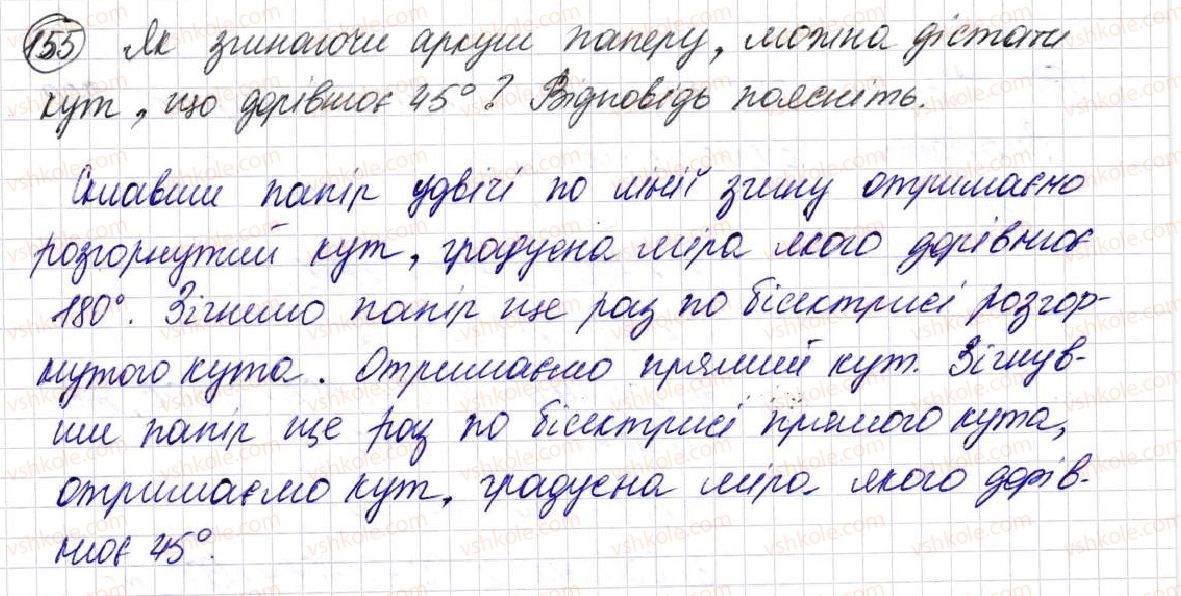 155 Як згинаючи аркуш паперу, можна дістати
кут, що дорівнює 45°? Відповідь поясніть.
Склавши папір удвічі по лінії згину отримаємо
розгорнутий кут, градусна міра якого дорівнює
180°. Зігнемо папір ще раз по бісектрисі розгор-
нутого кута. Отримаємо прямий кут. Зігнув-
ши папір ще раз по бісектрисі прямого кута,
отримаємо кут, градусна міра якого дорів-
нює 45°.